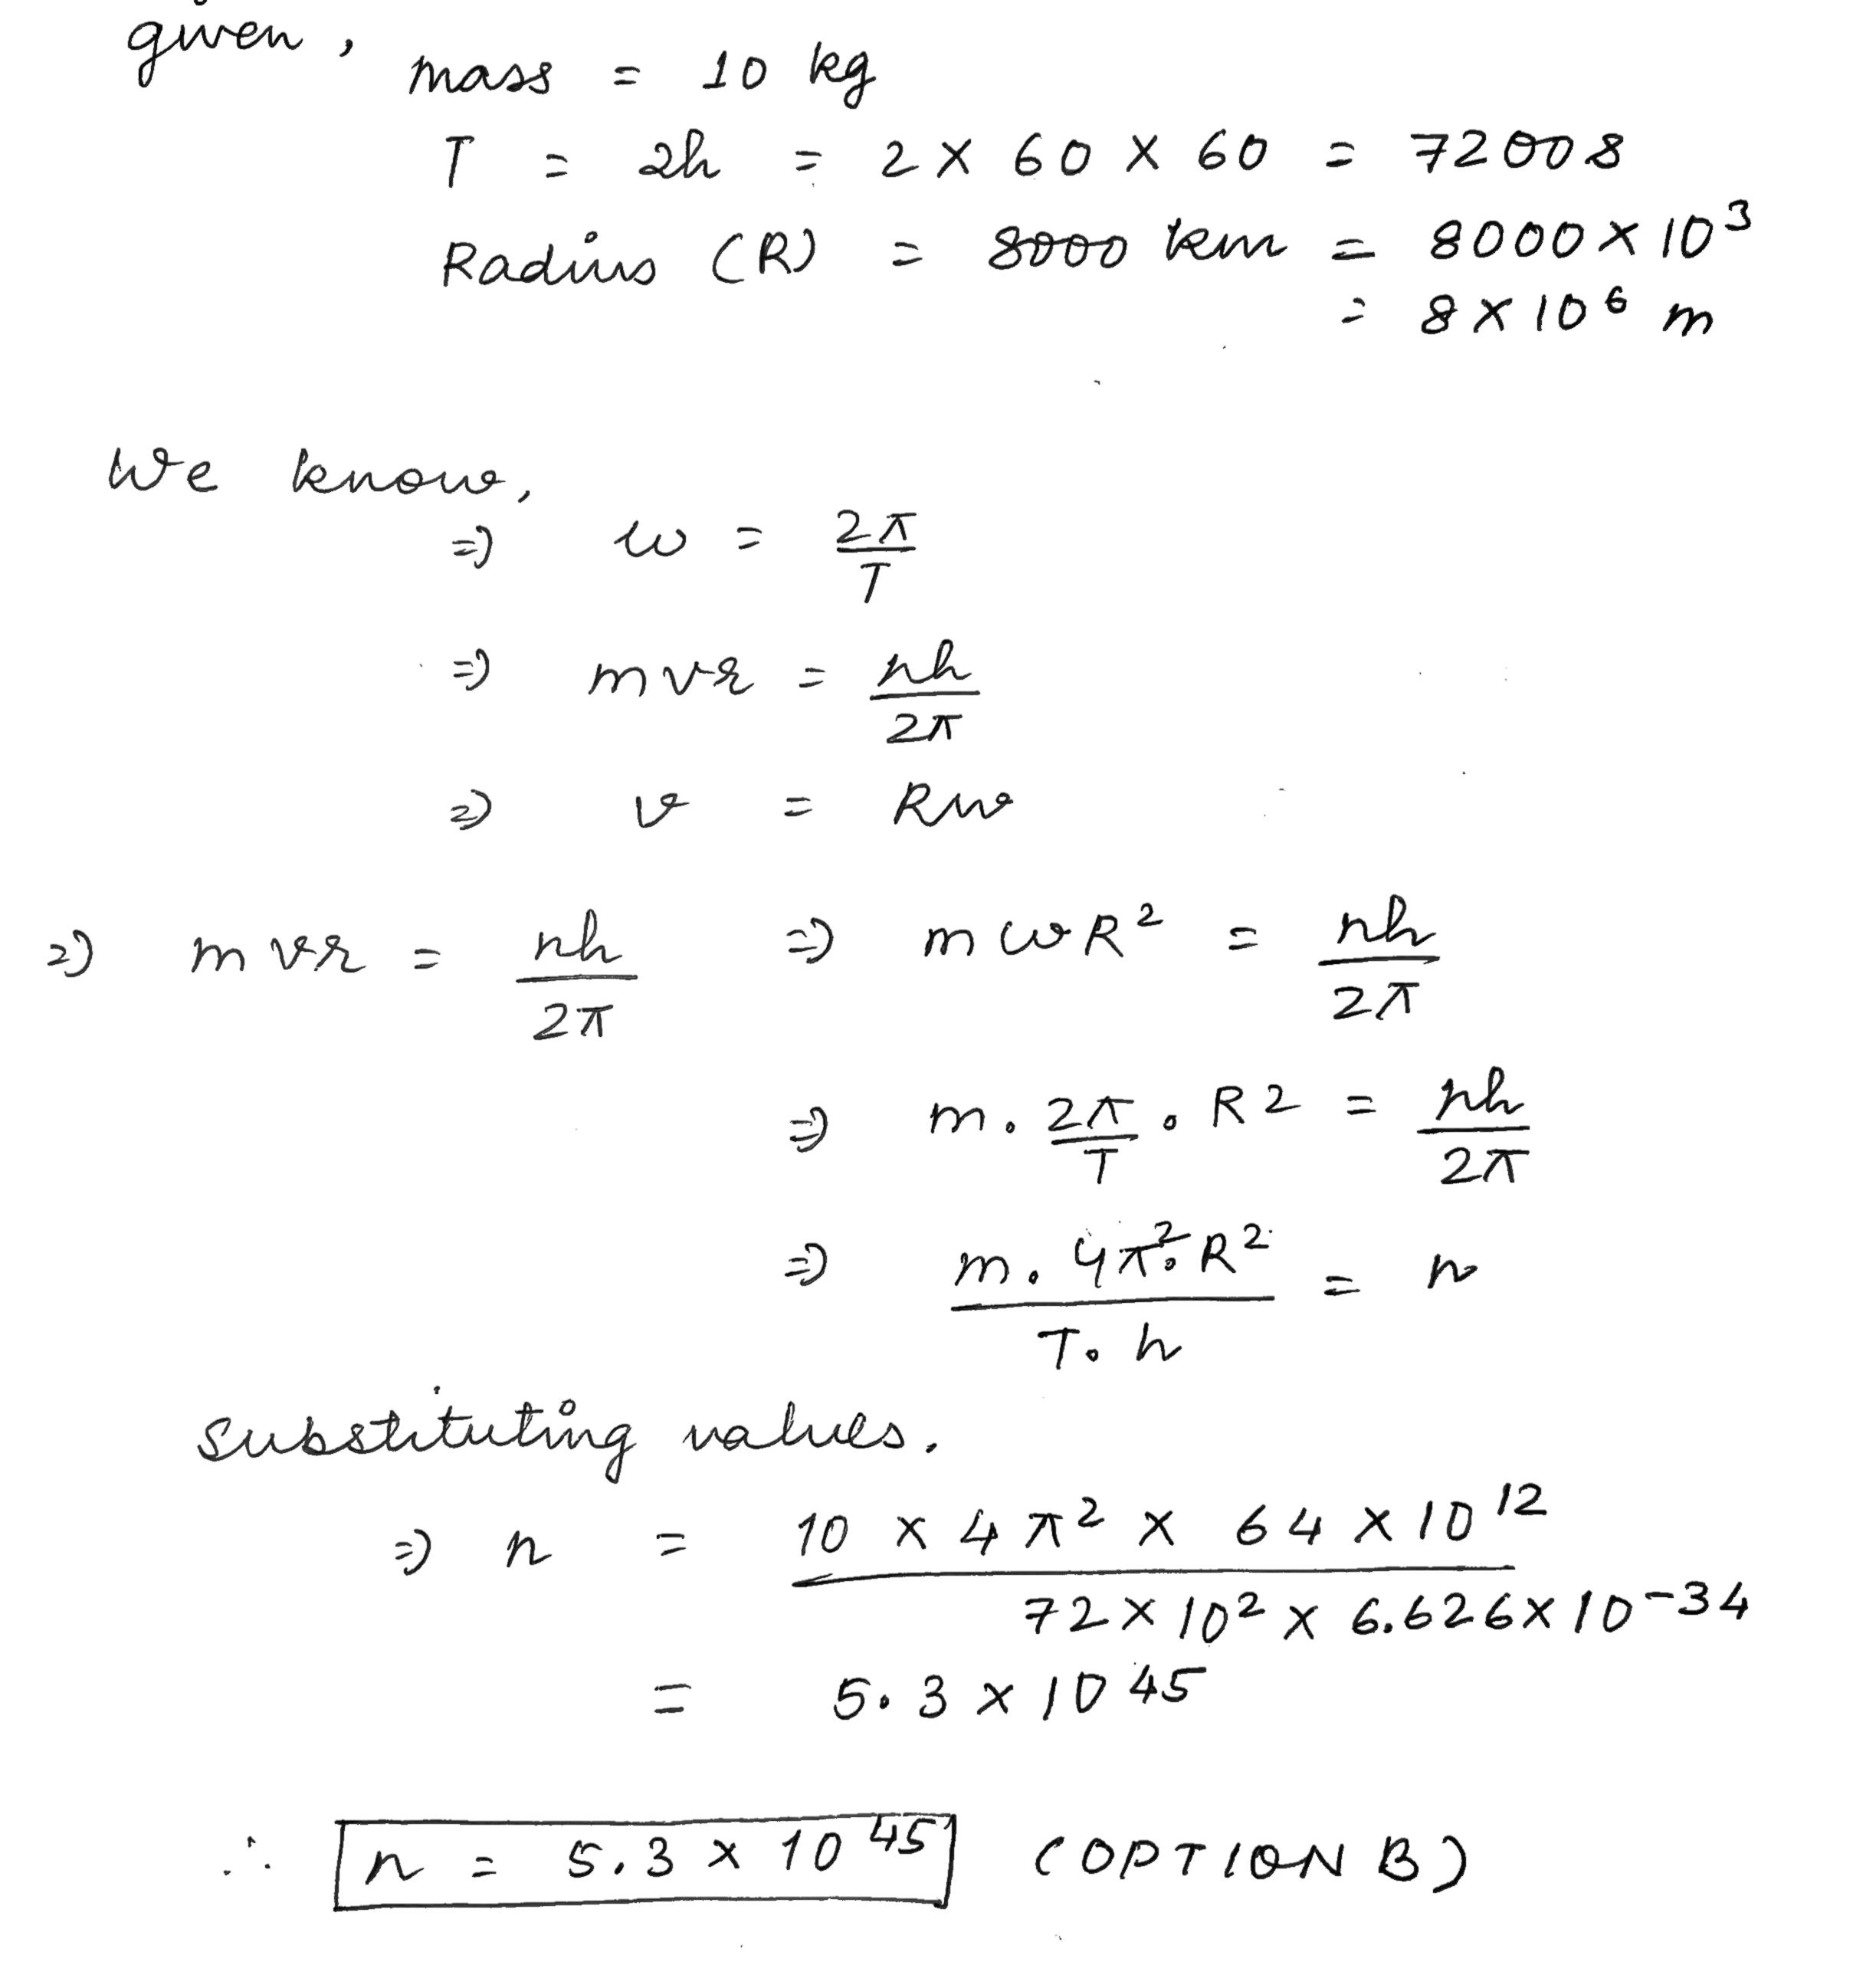 given,
mass = 10 kg
T = 2h = 2 × 60 × 60 = 7200s
Radius (R) = 8000 km = 8000 × 10³
= 8 × 10⁶ m
We know,
⇒ ω = 2π/T
⇒ mvr = nh/2π
⇒ v = Rω
⇒ mvr = nh/2π ⇒ mωR² = nh/2π
⇒ m. 2π/T . R2 = nh/2π
⇒ m. 4π². R²/T. h = n
substituting values.
⇒ n = 10 × 4π² × 64 × 10¹²/72 × 10² × 6.626 × 10⁻³⁴
= 5.3 × 10⁴⁵
∴ n = 5.3 × 10⁴⁵ (OPTION B)